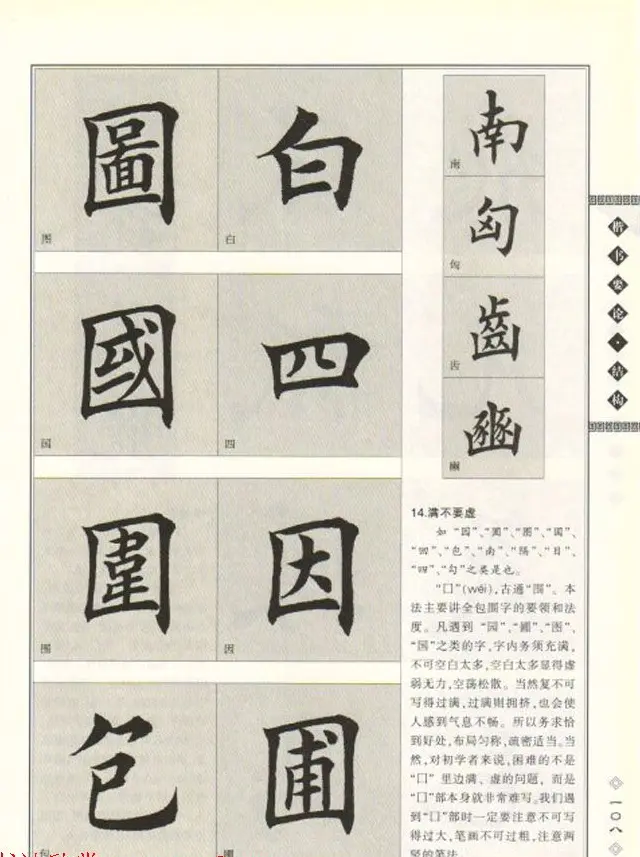 圖
图
白
白
國
国
四
四
圍
围
因
因
包
圃
圃
南
南
匈
匈
齒
齿
豳
豳
14.满不要虚
如“园”、“圃”、“图”、“国”、
“回”、“包”、“南”、“隔”、“目”、
“四”、“勾”之类是也。
“囗”(wéi)，古通“围”。本
法主要讲全包围字的要领和法
度。凡遇到“园”、“圃”、“图”、
“国”之类的字，字内务须充满，
不可空白太多，空白太多显得虚
弱无力，空荡松散。当然复不可
写得过满，过满则拥挤，也会使
人感到气息不畅。所以务求恰
到好处，布局匀称，疏密适当。当
然，对初学者来说，困难的不是
“囗”里边满、虚的问题，而是
“囗”部本身就非常难写。我们遇
到“囗”部时一定要注意不可写
得过大，笔画不可过粗，注意两
竖的笔法
楷书要论·结构
一〇八